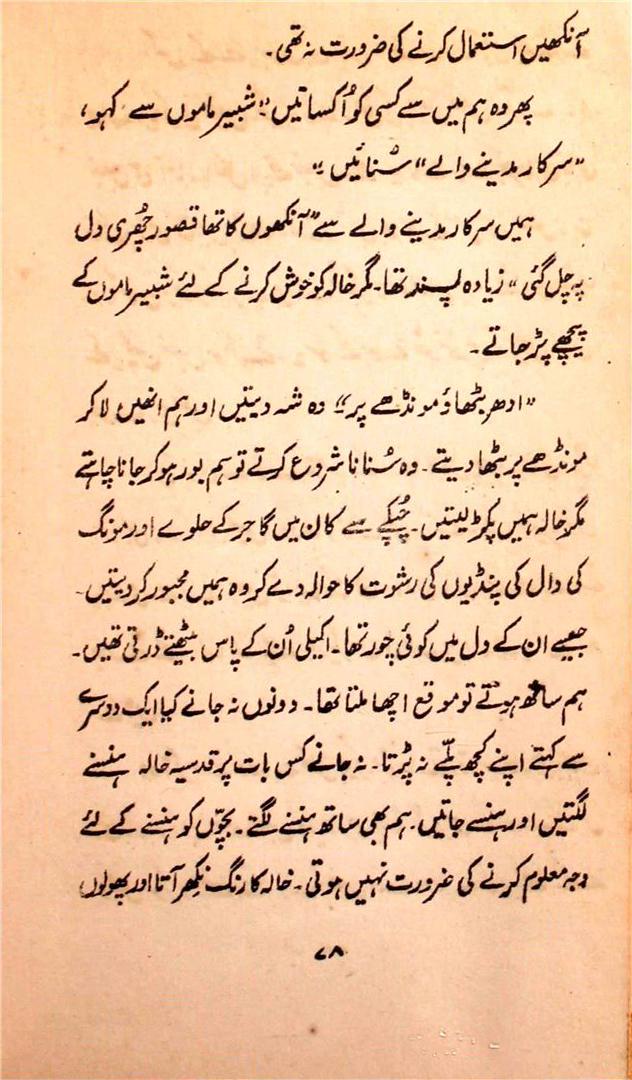 آنکھیں استعمال کرنے کی ضرورت نہ تھی۔
پھر وہ ہم میں سے کسی کو اُکساتیں "شبیر ماموں سے کہو،
"سرکار مدینے والے" سُنائیں"
ہمیں سرکار مدینے والے سے "آنکھوں کا تھا قصور چُھری دل
پہ چل گئی" زیادہ پسند تھا۔ مگر خالہ کو خوش کرنے کے لئے شبیر ماموں کے
پیچھے پڑ جاتے۔
"ادھر بٹھاؤ مونڈھے پر" وہ شہ دیتیں اور ہم انھیں لا کر
مونڈھے پر بٹھا دیتے۔ وہ سُنانا شروع کرتے تو ہم بور ہو کر جانا چاہتے
مگر خالہ ہمیں پکڑ لیتیں۔ چُپکے سے کان میں گاجر کے حلوے اور مونگ
کی دال کی پنڈیوں کی رشوت کا حوالہ دے کر وہ ہمیں مجبور کر دیتیں۔
جیسے ان کے دل میں کوئی چور تھا۔ اکیلی اُن کے پاس بیٹھتے ڈرتی تھیں۔
ہم ساتھ ہوتے تو موقع اچھا ملتا تھا۔ دونوں نہ جانے کیا ایک دوسرے
سے کہتے اپنے کچھ پلّے نہ پڑتا۔ نہ جانے کس بات پر قدسیہ خالہ ہنسنے
لگتیں اور ہنسے جاتیں۔ ہم بھی ساتھ ہنسنے لگتے۔ بچّوں کو ہنسنے کے لئے
وجہ معلوم کرنے کی ضرورت نہیں ہوتی۔ خالہ کا رنگ نِکھر آتا اور پھولوں
۷۸